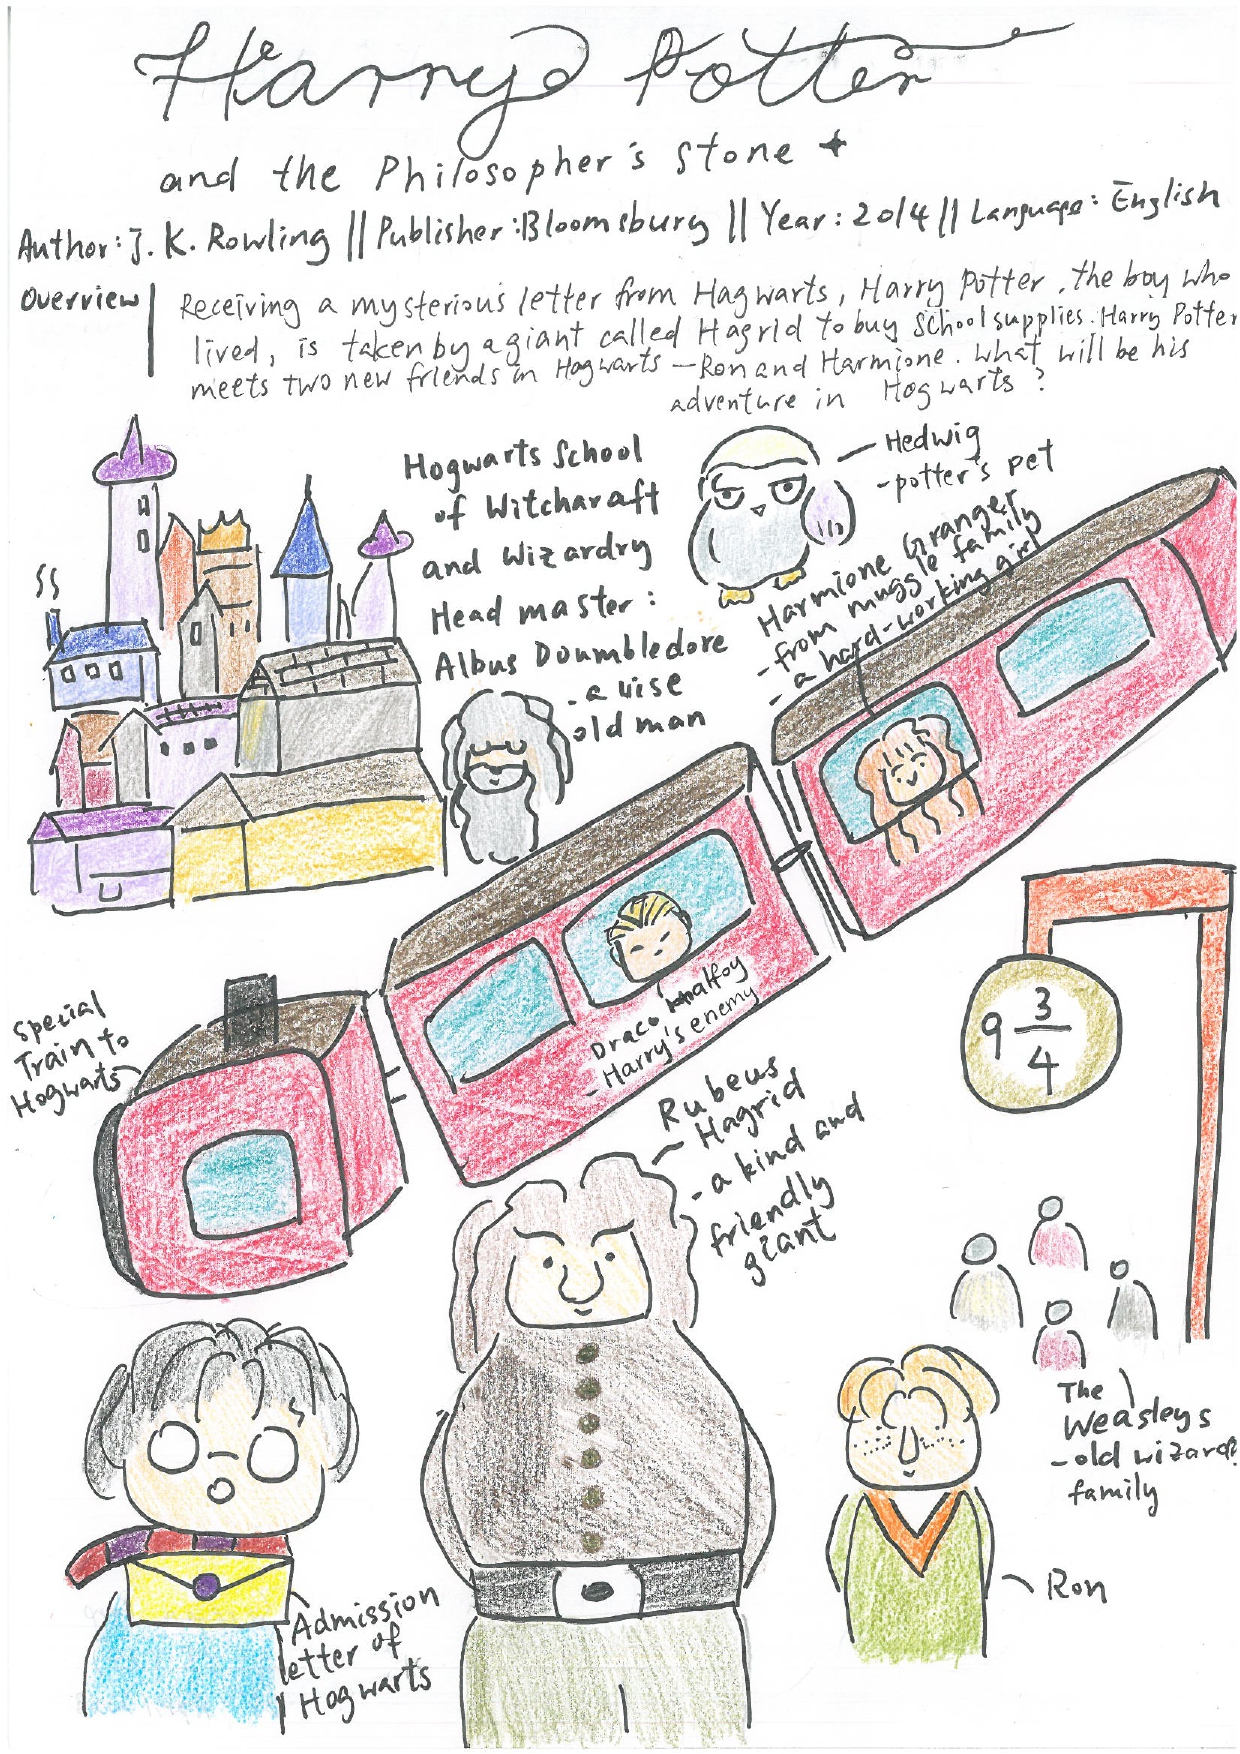 Harry Potter
and the Philosopher's Stone
Author: J. K. Rowling || Publisher: Bloomsbury || Year: 2014 || Language: English
Overview
Receiving a mysterious letter from Hagwarts, Harry Potter, the boy who
lived, is taken by a giant called Hagrid to buy school supplies. Harry Potter
meets two new friends in Hogwarts — Ron and Harmione. What will be his
adventure in Hogwarts?
Hogwarts School
of Witcharaft
and Wizardry
Head master:
Albus Doumbledore
- a wise
old man
Hedwig
- potter's pet
Harmione Granger
- from muggle family
- a hard-working girl
Special
Train to
Hogwarts
Draco Malfoy
- Harry's enemy
9 3/4
Rubeus
Hagrid
- a kind and
friendly
giant
The
Weasleys
- old wizard
family
Admission
letter of
Hogwarts
Ron